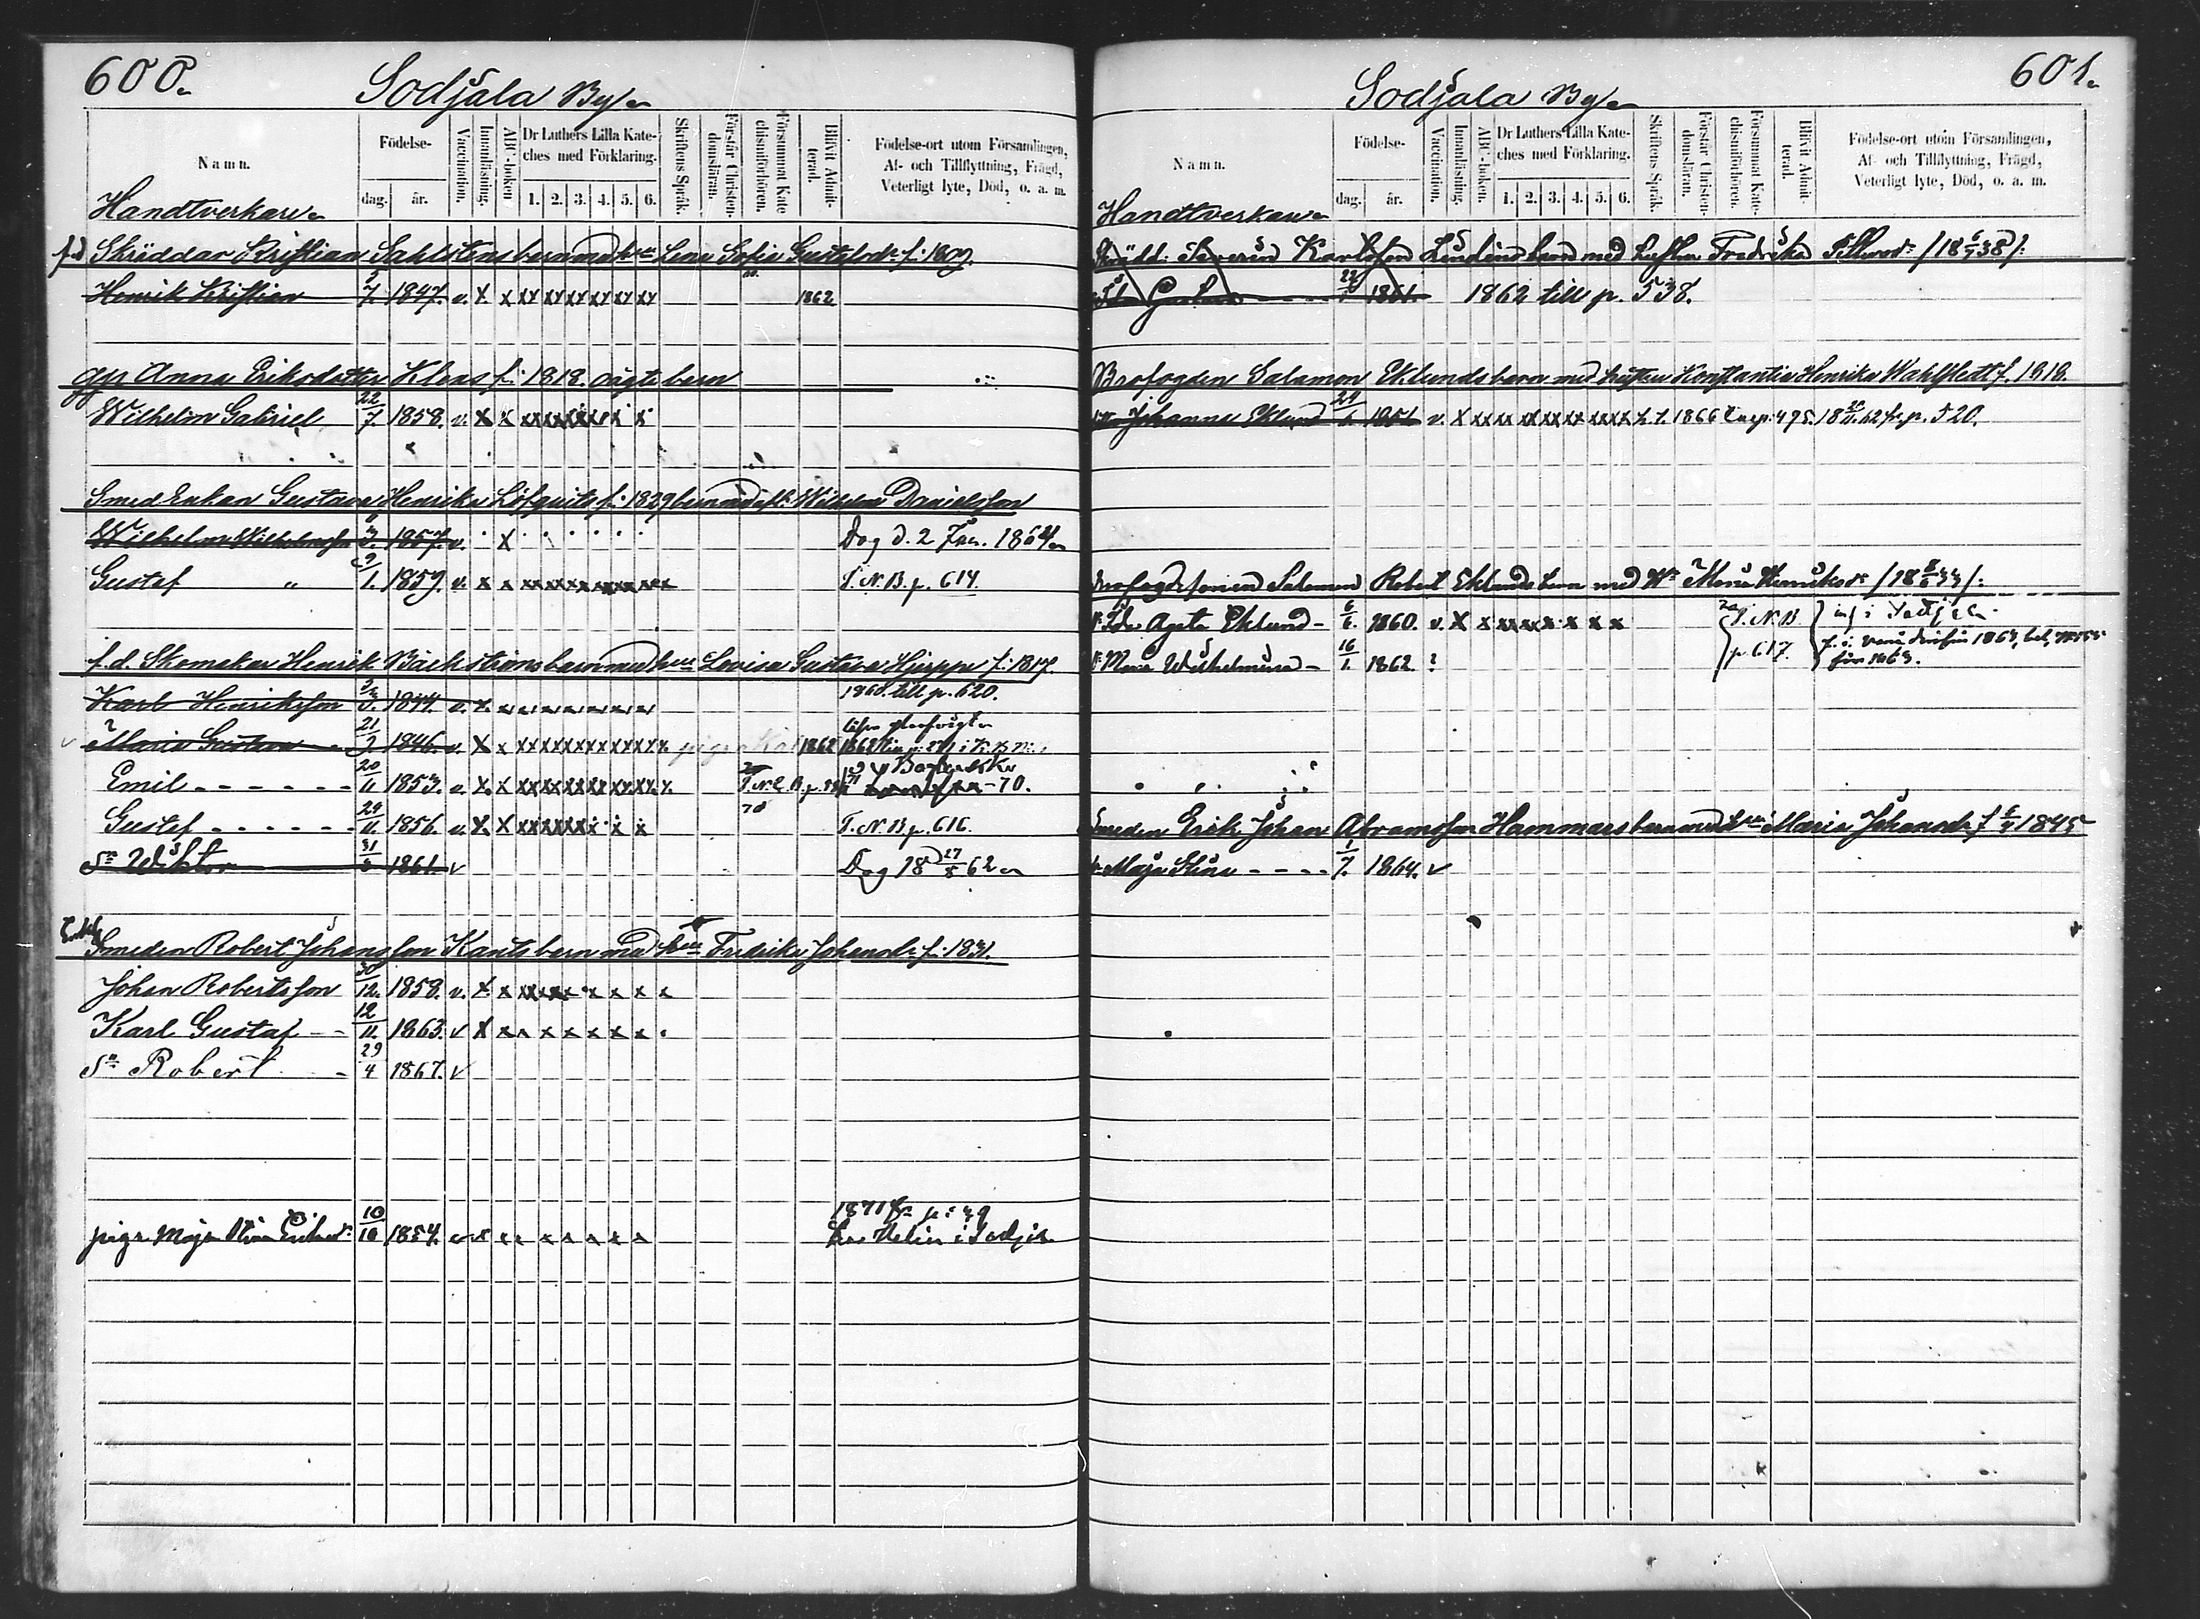 600.
Sodjala By
Namn.
Födelse-
dag.
år.
Vaccination.
Innanläsning.
ABC-boken
Dr Luthers Lilla Kate-
ches med Förklaring.
1. 2. 3. 4. 5. 6.
Skriftens Språk.
Förstår Christen-
domsläran.
Försummat Kate
chismiförhören.
Blivit Admit-
terad.
Födelse-ort utom Församlingen,
Af- och Tillflyttning, Frägd,
Veterligt lyte, Död, o. a. m.
Handtverkare
f.d Skräddar Kristian Sahlstens barn med Lena Sofia f. 1809.
Henrik Kristian 7. 1847. v. x x xx xx xx xx xx xx 1862
Anna Eriksdotter Klens f. 1818. oägta barn
Wilhelm Gabriel 22/7. 1858. v. x x
Smed Enkan Gustava Henrika Löfquists f. 1829 barn med Wilhelm Danielsson
Wilhelm Wilhelmsson 3. 1857. v. x Dog d. 2 Jan. 1864
Gustaf " 2/1. 1859. v. x x T.N.B. p. 614.
f.d. Skomakar Henrik Bäckströms barn med Lovisa Gustava f. 1817.
Karl Henriksson 1844. v. x. 1860. till p. 620.
Maria Gustava 21/2 1846. v. x x 1862
Emil 20/11. 1853. v. x x 70.
Gustaf 29/11. 1856. v. x. x 70 T.N.B p. 616.
Sn Wiktor 31/3 1861. v Dog 18 27/5 62
Smeden Robert Johansson Kants barn med Fredrika Johansdr f. 1831.
Johan Robertsson 30/12. 1858. v. x x
Karl Gustaf 12/11. 1863. v x x x x x x x
Sn Robert 29/4 1867. v
piga Maja Stina 10/10 1854. 1871
601.
Sodjala By
Namn.
Födelse-
dag.
år.
Vaccination.
Innanläsning.
ABC-boken.
Dr Luthers Lilla Kate-
ches med Förklaring.
1. 2. 3. 4. 5. 6.
Skriftens Språk.
Förstår Christen-
domsläran.
Försummat Kate-
chismiförhören.
Blivit Admit-
terad.
Födelse-ort utom Församlingen,
Af- och Tillflyttning, Frägd,
Veterligt lyte, Död, o. a. m.
Handtverkare
Skrädd. Severin Karlsson Lindéns barn med hustru Fredrika /18 6/7 38/:
Gustava 1861. 1862 till p. 538.
Brofogden Salamon Eklunds barn med hustru Konstantia Henrika Wahlstedt f. 1818.
Johanna Eklund 29/1. 1851 v. x 1866 p. 520.
Brofogdesonen Salamon Robert Eklunds barn med Hu Maria Henriksdr /18 33/:
Ida Agata Eklund 6/6. 1860. v. x x T.N.B
Maria Wilhelmina 16/1. 1862. ? p. 617.
Smeden Erik Johan Abramsson Hammars barn med Maria Johansdr f 1845
Maja Stina 1/7. 1864. v